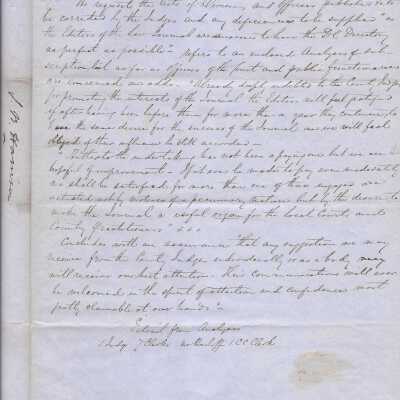 We request the lists of Attorneys and Officers published to
be corrected by the Judges and any deficiencies to be supplied "as
the Editors of the Law Journal are anxious to have the D.C. Directory
as perfect as possible". refers to an enclosed Analysis of sub
scription list as far as Officers of the Court and public functionaries
are concerned and adds. "Already deeply indebted to the County Judges
for promoting the interests of the Journal the Editors will feel gratified
if after having been before them for more than a year they continue to
the same desire for the success of the Journal and we will feel
of their influence be still accorded —
"Hitherto the undertaking has not been a paying one but we are
hopeful of improvement — If it can be made to pay even moderately
we shall be satisfied for more than one of those engaged are
actuated not by motives of a pecuniary nature but by the desire to
make the Journal a useful organ for the local Courts and
County Practitioners" x x x
Concludes with an assurance "that any suggestion we may
receive from the County Judges individually or as a body may
will receive our best attention. Their communications will ever
be welcomed in the spirit of attention and confidence most
justly claimable at our hands" —
Extract from Analysis
1 Judge 7 Clerks no Bailiff 1 CC Clerk